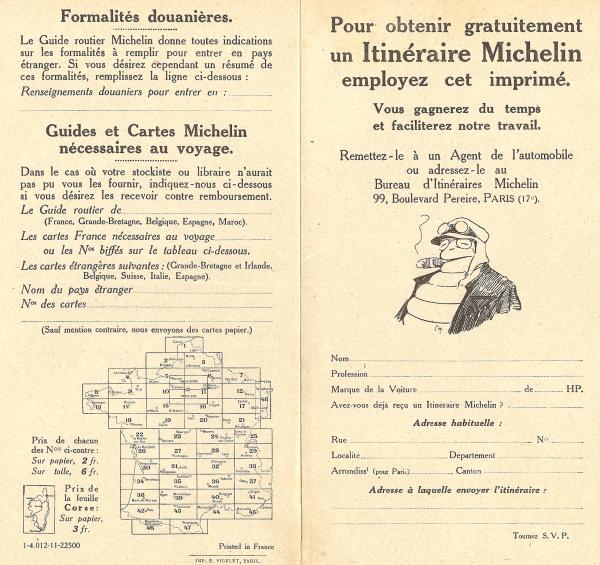 Formalités douanières.
Le Guide routier Michelin donne toutes indications
sur les formalités à remplir pour entrer en pays
étranger. Si vous désirez cependant un résumé de
ces formalités, remplissez la ligne ci-dessous :
Renseignements douaniers pour entrer en :
Guides et Cartes Michelin
nécessaires au voyage.
Dans le cas où votre stockiste ou libraire n'aurait
pas pu vous les fournir, indiquez-nous ci-dessous
si vous désirez les recevoir contre remboursement.
Le Guide routier de
(France, Grande-Bretagne, Belgique, Espagne, Maroc).
Les cartes France nécessaires au voyage
ou les Nos biffés sur le tableau ci-dessous.
Les cartes étrangères suivantes : (Grande-Bretagne et Irlande,
Belgique, Suisse, Italie, Espagne).
Nom du pays étranger
Nos des cartes
(Sauf mention contraire, nous envoyons des cartes papier.)
Prix de chacun
des Nos ci-contre :
Sur papier, 2 fr.
Sur toile, 6 fr.
Prix de
la feuille
Corse :
Sur papier,
3 fr.
1-4.012-11-22500
Printed in France
IMP. E. PIGELET, PARIS.
Pour obtenir gratuitement
un Itinéraire Michelin
employez cet imprimé.
Vous gagnerez du temps
et faciliterez notre travail.
Remettez-le à un Agent de l'automobile
ou adressez-le au
Bureau d'Itinéraires Michelin
99, Boulevard Pereire, PARIS (17e).
Nom
Profession
Marque de la Voiture de HP.
Avez-vous déjà reçu un Itineraire Michelin ?
Adresse habituelle :
Rue No
Localité Département
Arrondisst (pour Paris) Canton
Adresse à laquelle envoyer l'itinéraire :
Tournez S. V. P.